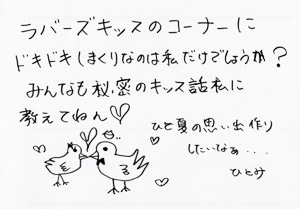 ラバーズキッスのコーナーに
ドキドキしまくりなのは私だけでしょうか?
みんなも秘密のキッス話私に
教えてねん♡
ひと夏の思い出作り
したいなぁ・・・
ひとみ